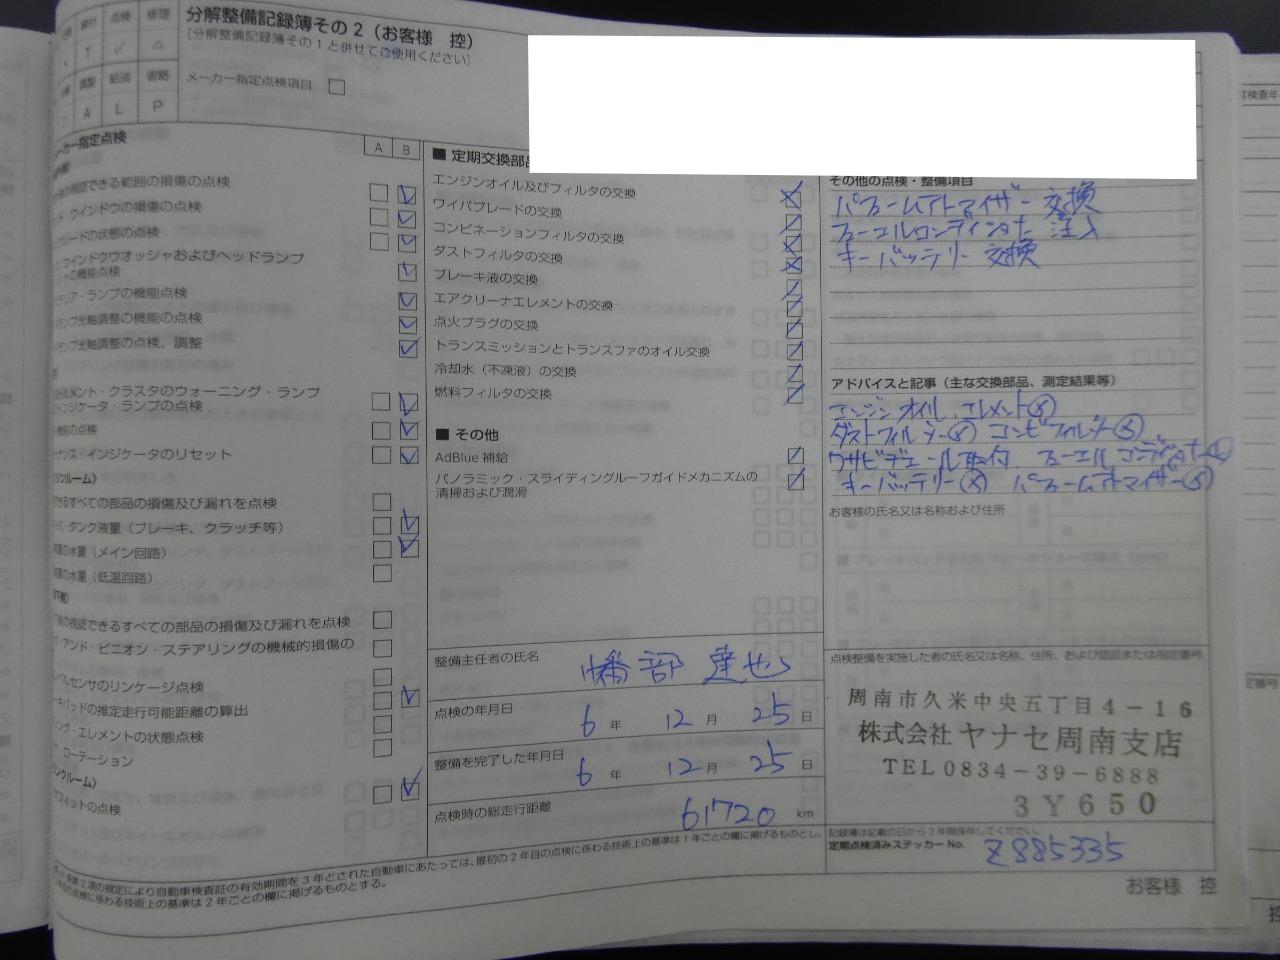 締付 点検 修理
T ✓ △
調製 給油 省略
A L P
分解整備記録簿その2(お客様 控)
[分解整備記録簿その1と併せてご使用ください]
メーカー指定点検項目
カー指定点検
A B
視認できる範囲の損傷の点検
ウインドウの損傷の点検
ブレードの状態の点検
ウインドウウオッシャおよびヘッドランプ
の機能点検
テリア・ランプの機能点検
ランプ光軸調整の機能の点検
ランプ光軸調整の点検、調整
メント・クラスタのウォーニング・ランプ
インジケータ・ランプの点検
機能の点検
ナンス・インジケータのリセット
ジンルーム》
きるすべての部品の損傷及び漏れを点検
タンク液量(ブレーキ、クラッチ等)
の水量(メイン回路)
の水量(低温回路)
の視認できるすべての部品の損傷及び漏れを点検
アンド・ピニオン・ステアリングの機械的損傷の
ベルセンサのリンケージ点検
キパッドの推定走行可能距離の算出
エレメントの状態点検
ローテーション
ンクルーム》
フィットの点検
■ 定期交換部品
エンジンオイル及びフィルタの交換
ワイパブレードの交換
コンビネーションフィルタの交換
ダストフィルタの交換
ブレーキ液の交換
エアクリーナエレメントの交換
点火プラグの交換
トランスミッションとトランスファのオイル交換
冷却水(不凍液)の交換
燃料フィルタの交換
■ その他
AdBlue 補給
パノラミック・スライディングルーフガイドメカニズムの
清掃および潤滑
整備主任者の氏名
部 達也
点検の年月日 6 年 12 月 25 日
整備を完了した年月日 6 年 12 月 25 日
点検時の総走行距離 61720 km
その他の点検・整備項目
パフュームアトマイザー 交換
フューエルコンディショナー 注入
キーバッテリー 交換
アドバイスと記事(主な交換部品、測定結果等)
エンジンオイル、エレメント
ダストフィルター コンビフィルター
ワサビデェール取付、フューエルコンディショナー
キーバッテリー パフュームアトマイザー
お客様の氏名又は名称および住所
点検整備を実施した者の氏名又は名称、住所、および認証または指定番号
周南市久米中央五丁目4-16
株式会社ヤナセ周南支店
TEL0834-39-6888
3Y650
記録簿は記載の日から2年間保存してください。
定期点検済みステッカーNo. Z885335
第2項の規定により自動車検査証の有効期間を3年とされた自動車にあたっては、最初の2年目の点検に係わる技術上の基準は1年ごとの欄に掲げるものとし、
目の点検に係わる技術上の基準は2年ごとの欄に掲げるものとする。
お客様 控
検査年
定番号
控